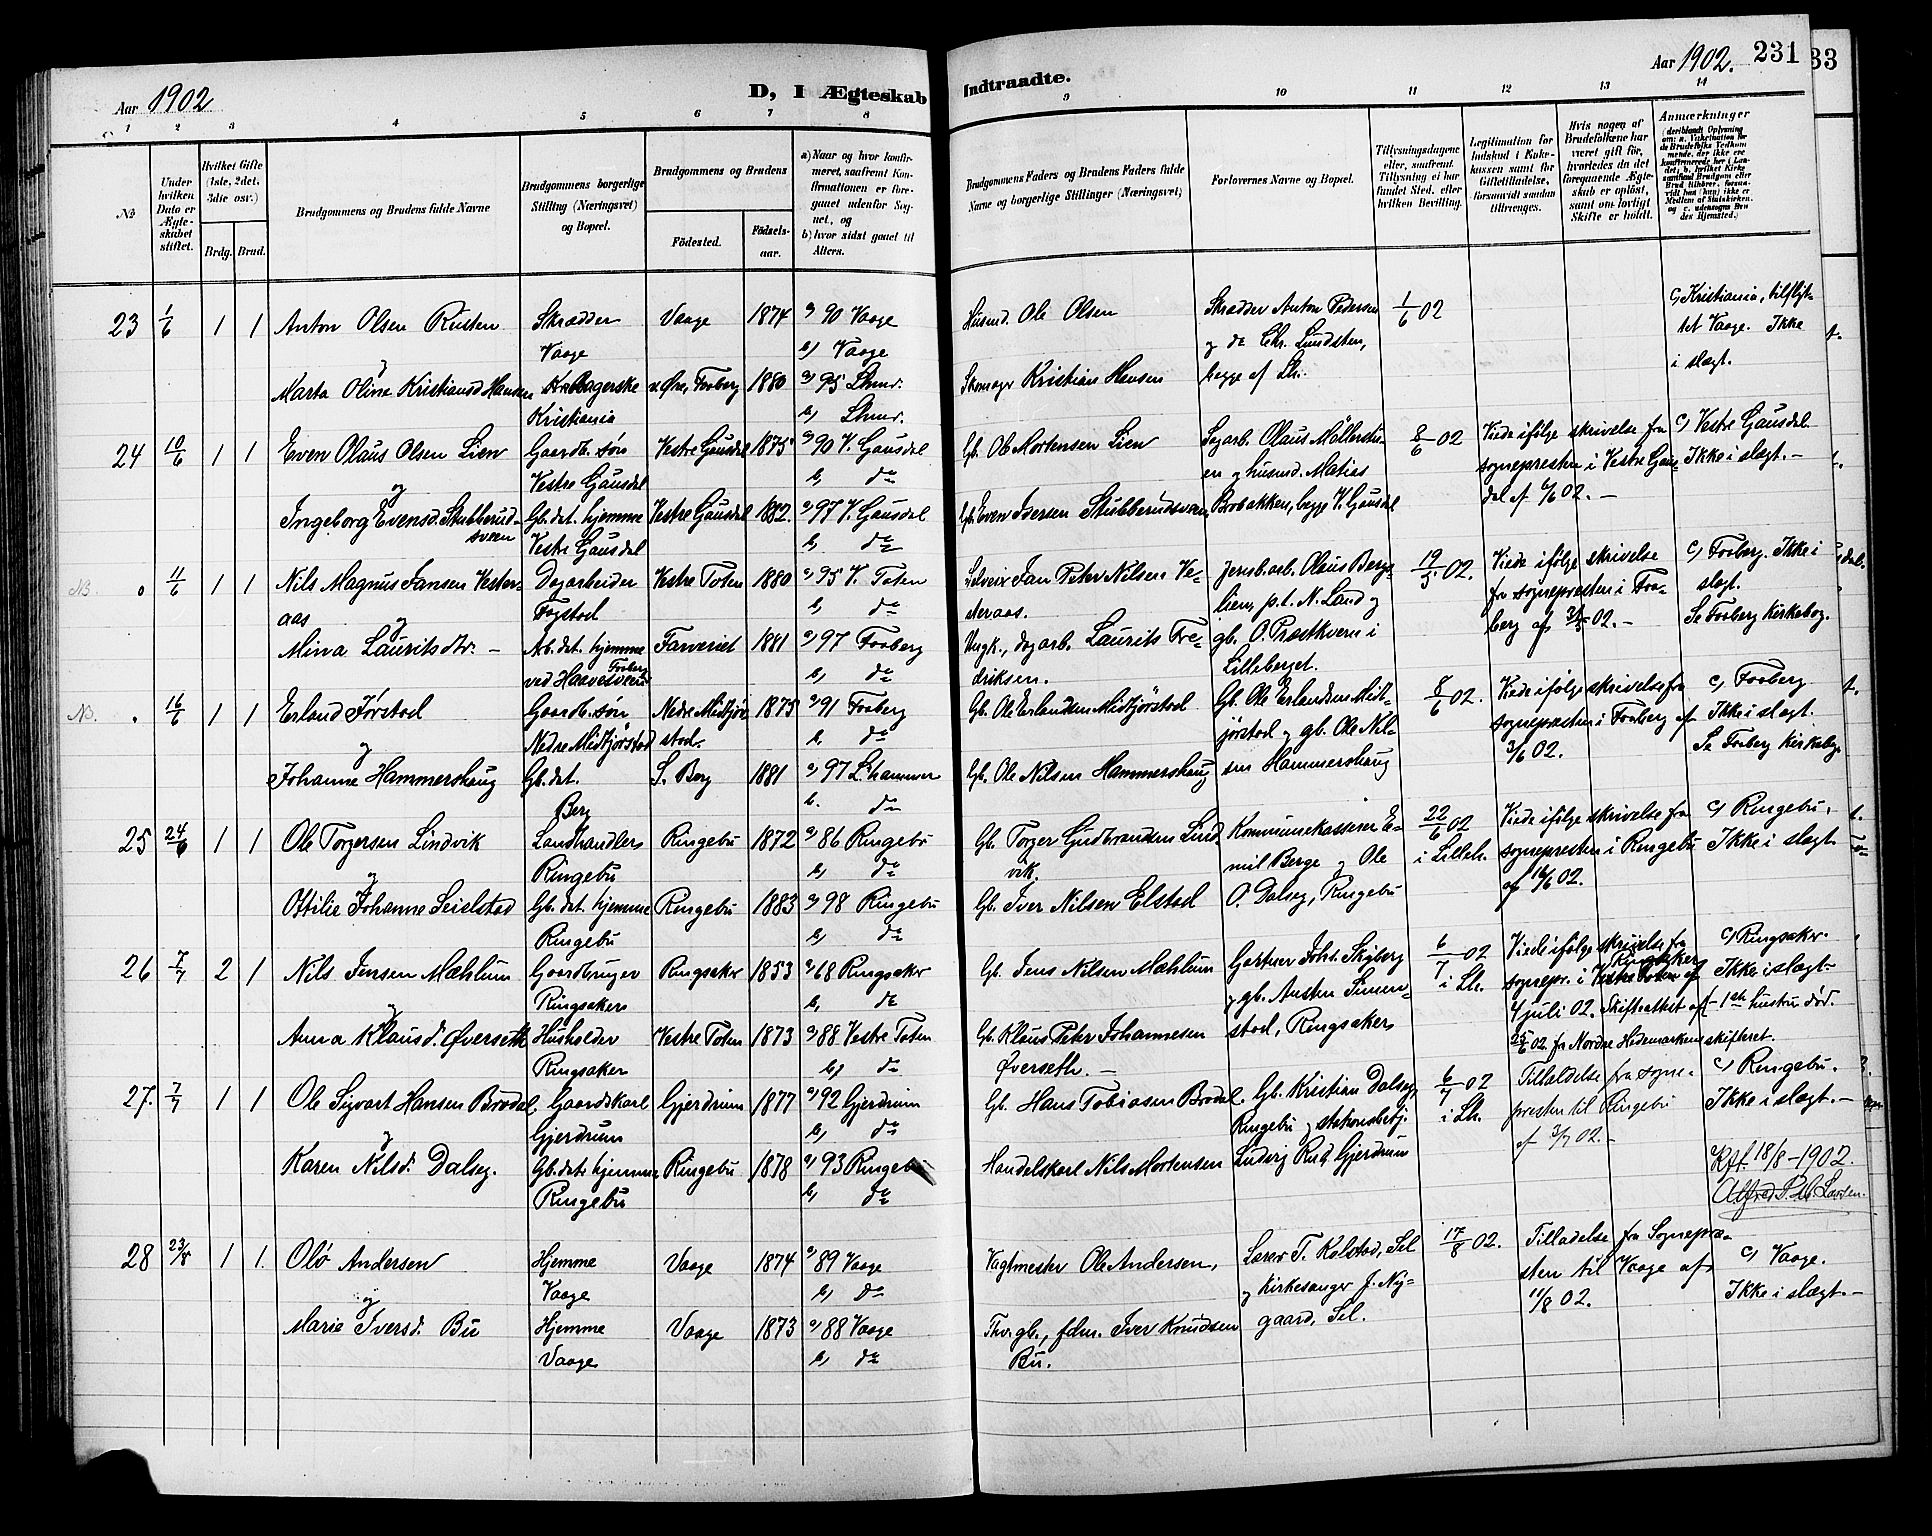 Aar 1902
D, I Ægteskab
Indtraadte.
Aar 1902.
231
33
1 2 3 4 5 6 7 8
9 10 11 12 13 14
No
Under hvilken Dato er Ægteskabet stiftet.
Hvilket Gifte (1ste, 2det, 3die osv.)
Brdg. Brud.
Brudgommens og Brudens fulde Navne
Brudgommens borgerlige Stilling (Næringsvei) og Bopæl.
Brudgommens og Brudens
Födested.
Födsels-aar.
a) Naar og hvor konfirmeret, saafremt Konfirmationen er foregaaet udenfor Sognet, og
b) hvor sidst gaaet til Alters.
Brudgommens Faders og Brudens Faders fulde Navne og borgerlige Stillinger (Næringsvei)
Forlovernes Navne og Bopæl.
Tillysningsdagene eller, saafremt Tillysning ei har fundet Sted, efter hvilken Bevilling.
Legitimation for Indskud i Enkekassen samt for Giftetilladelse, forsaavidt saadan tiltrænges.
Hvis nogen af Brudefolkene har været gift för, hvorledes da det foregaaende Ægteskab er oplöst, samt om lovligt Skifte er holdt.
Anmærkninger
23 1/6 1 1 Anton Olsen Rusten Skrædder Vaage 1874 a) 90 Vaage
Vaage b) Vaage
og
Marta Oline Kristiansd Hansen Kagerske n. Øre, Faaberg 1880 a) 95 Lhmr.
Kristiania b) Lhmr.
Husmd. Ole Olsen Skrædder Anton Pedersen 1/6 02 c) Kristiania, tilflyt-
og do Chr. Lundsten, tet Vaage. Ikke
Skomager Kristian Hansen begge af Lh. i slægt.
24 10/6 1 1 Even Olaus Olsen Lien Gaardb. søn Vestre Gausdal 1875 a) 90 V. Gausdal
og Vestre Gausdal b) do
Ingeborg Evensd. Stubberud- Gb. dat. hjemme Vestre Gausdal 1882. a) 97 V. Gausdal
sveen Vestre Gausdal b) do
Gb. Ole Mortensen Lien Sagarb. Olaus Møllerstu- 8/6 02 Viede ifølge skrivelse fra c) Vestre Gausdal
en og husmd. Matias sognepresten i Vestre Gaus- Ikke i slægt. -
Gb. Even Iversen Stubberudsveen Brobakken, begge V. Gausdal dal af 6/6 02. -
NB. o 11/6 1 1 Nils Magnus Jansen Vester- Dagarbeider Vestre Toten 1880 a) 95 V. Toten
aas og Fogstad b) do
Mina Lauritsdtr. - Arb. dat. hjemme Farveriet 1881 a) 97 Faaberg
ved Haavesveen Faaberg b) do
Selveier Jan Peter Nilsen Ve- Jernb. arb. Olaus Berg- 19/5 02. Viede ifølge skrivelse c) Faaberg. Ikke i
steraas. lien, p.t. N. Land og fra sognepresten i Faa- slægt.
Ungk., dagarb. Laurits Fre- gb. O. Præstkvern i berg af 02. - Se Faaberg Kirkebog.
driksen. Lilleberget.
NB. o 16/6 1 1 Erland Jørstad Gaardb. søn Nedre Midtjør- 1875 a) 91 Faaberg
og Nedre Midtjørstad stad. b) do
Johanne Hammershaug Gb. dat. S. Berg 1881 a) 97 L.hammer
Berg b. do
Gb. Ole Erlandsen Midtjørstad Gb. Ole Erlandsen Midt- 8/6 02. Viede ifølge skrivelse fra c) Faaberg
jørstad og gb. Ole Nil- sognepræsten i Faaberg af Ikke i slægt.
Gb. Ole Nilsen Hammershaug sen Hammershaug 3/6 02. Se Faaberg Kirkebog.
25 24/6 1 1 Ole Torgersen Lindvik Landhandler Ringebu 1872 a) 86 Ringebu
og Ringebu b) do
Ottilie Johanne Seielstad Gb. dat. hjemme Ringebu 1883 a) 98 Ringebu
Ringebu b) do
Gb. Torger Gudbrandsen Lind- Kommunekasserer E- 22/6 02 Viede ifølge skrivelse fra c) Ringebu.
vik. mil Berge og Ole i Lilleh. sognepresten i Ringebu Ikke i slægt.
Gb. Iver Nilsen Elstad O. Dalseg, Ringebu af 16/6 02.
26 7/7 2 1 Nils Jensen Mæhlum Gaardbruger Ringsaker 1853 a) 68 Ringsaker
og Ringsaker b) do
Anna Klausd. Øverseth Husholder Vestre Toten 1873 a) 88 Vestre Toten
Ringsaker b) do
Gb. Jens Nilsen Mæhlum Gartner Johs. Skyberg 6/7 02 Viede ifølge skrivelse fra c) Ringsaker.
og gb. Austen Simen- i Lh. sognepr. i Vestre Toten Ringsaker af Ikke i slægt. -
Gb. Klaus Peter Johannesen stad, Ringsaker 4 juli 02. Skifteattest af 1ste hustru død.
Øverseth. - 25/6 02. fr Nordre Hedemarkens skifteret.
27. 7/7 1 1 Ole Sigvart Hansen Brodal Gaardskarl Gjerdrum 1877 a) 92 Gjerdrum
og Gjerdrum b) do
Karen Nilsd. Dalseg. Gb. dat. hjemme Ringebu 1878 a) 93 Ringebu
Ringebu b) do
Gb. Hans Tobiasen Brodal. Gb. Kristian Dalseg, 6/7 02 Tilladelse fra sogne- c) Ringebu.
Ringebu og stationsbetj. i Lh. presten til Ringebu Ikke i slægt. -
Handelskarl Nils Mortensen Ludvig Rud Gjerdrum af 3/7 02. -
Kff. 18/8-1902.
Alfred P. M. Larsen.
28 23/8 1 1. Ole Andersen Hjemme Vaage 1874 a) 89 Vaage
og Vaage b) do
Marie Iversd. Bu Hjemme Vaage 1873 a) 88 Vaage
Vaage b) do
Vagtmester Ole Andersen, Lærer T. Kolstad, Sel 17/8 02. Tilladelse fra Sognepræ- c) Vaage.
og kirkesanger J. Ny- sten til Vaage af Ikke i slægt. -
Thv. gb., fdm. Iver Knudsen gaard, Sel. 11/8 02.
Bu.